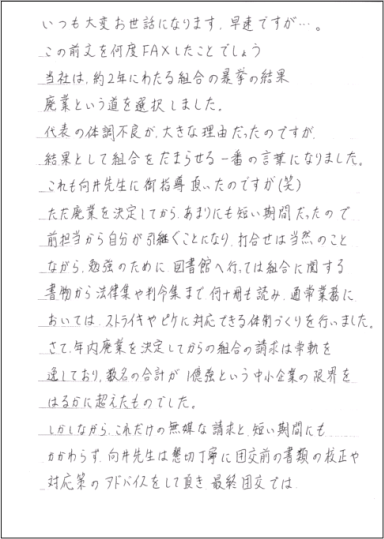 いつも大変お世話になります。早速ですが…。
この前文を何度FAXしたことでしょう
当社は、約2年にわたる組合の暴挙の結果
廃業という道を選択しました。
代表の体調不良が、大きな理由だったのですが、
結果として組合をだまらせる一番の言葉になりました。
これも向井先生に御指導頂いたのですが(笑)
ただ廃業を決定してから、あまりにも短い期間だったので
前担当から自分が引継ぐことになり、打合せは当然のこと
ながら、勉強のために図書館へ行っては組合に関する
書物から法律集や判令集まで何十冊も読み、通常業務に
おいては、ストライキやピケに対応できる体制づくりを行いました。
さて、年内廃業を決定してからの組合の請求は常軌を
逸しており、数名の合計が1億強という中小企業の限界を
はるかに超えたものでした。
しかしながら、これだけの無謀な請求と、短い期間にも
かかわらず、向井先生は懇切丁寧に団交前の書類の校正や
対応策のアドバイスをして頂き最終団交では